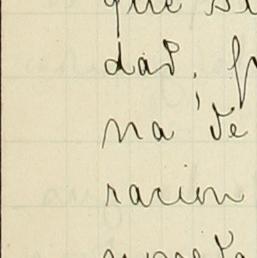 que si
dad, 
na de
racion